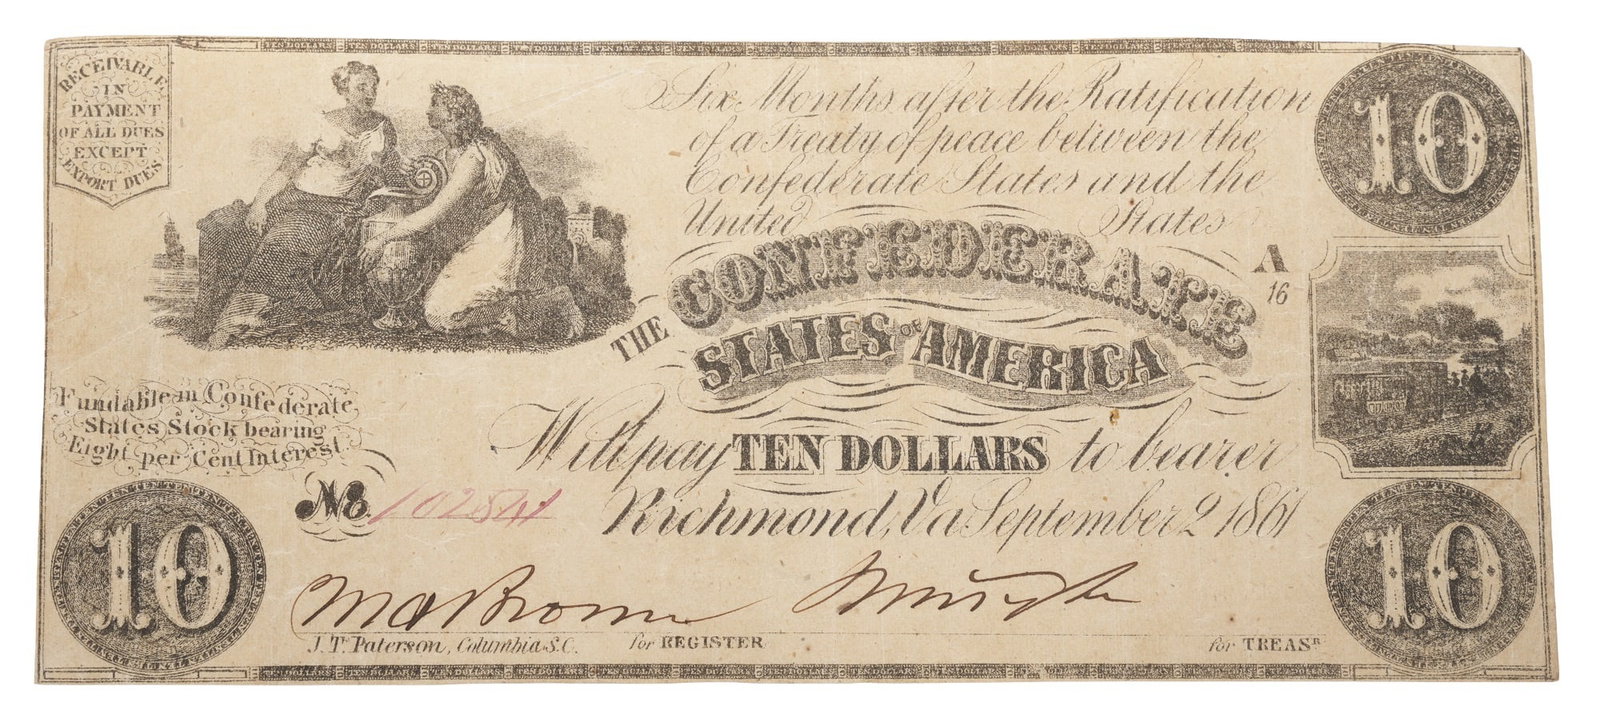 RECEIVABLE
IN
PAYMENT
OF ALL DUES
EXCEPT
EXPORT DUES
Six Months after the Ratification
of a Treaty of peace between the
Confederate States and the
United States
10
A
16
THE CONFEDERATE
STATES OF AMERICA
Fundable in Confederate
States Stock bearing
Eight per Cent Interest
Will pay TEN DOLLARS to bearer
No. 102541
Richmond, Va September 2 1861
10
10
J. T. Paterson, Columbia S.C.
for REGISTER
for TREASR